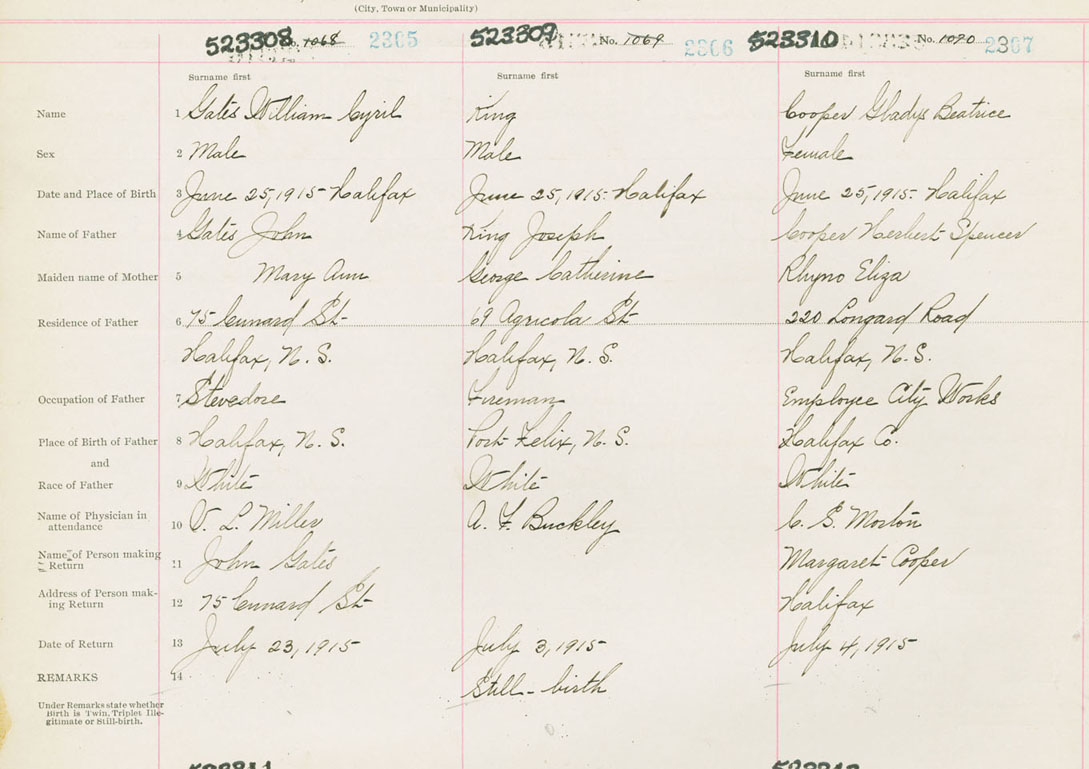 (City, Town or Municipality)
523308 No. 1068 2305 523309 No. 1069 2306 523310 No. 1070 2307
Surname first Surname first Surname first
Name 1 Gates William Cyril King Cooper Gladys Beatrice
Sex 2 Male Male Female
Date and Place of Birth 3 June 25, 1915 Halifax June 25, 1915. Halifax June 25, 1915. Halifax
Name of Father 4 Gates John King Joseph Cooper Herbert Spencer
Maiden name of Mother 5 Mary Ann George Catherine Rhyno Eliza
Residence of Father 6 75 Cunnard St 69 Agricola St 220 Longard Road
Halifax, N. S. Halifax, N. S. Halifax, N. S.
Occupation of Father 7 Stevedore Fireman Employee City Works
Place of Birth of Father 8 Halifax, N. S. Port Felix, N. S. Halifax Co.
and
Race of Father 9 White White White
Name of Physician in
attendance 10 V. L. Miller A. F. Buckley C. S. Morton
Name of Person making
Return 11 John Gates Margaret Cooper
Address of Person mak-
ing Return 12 75 Cunnard St Halifax
Date of Return 13 July 23, 1915 July 3, 1915 July 4, 1915
REMARKS 14 Still-birth
Under Remarks state whether
Birth is Twin, Triplet, Ille-
gitimate or Still-birth.